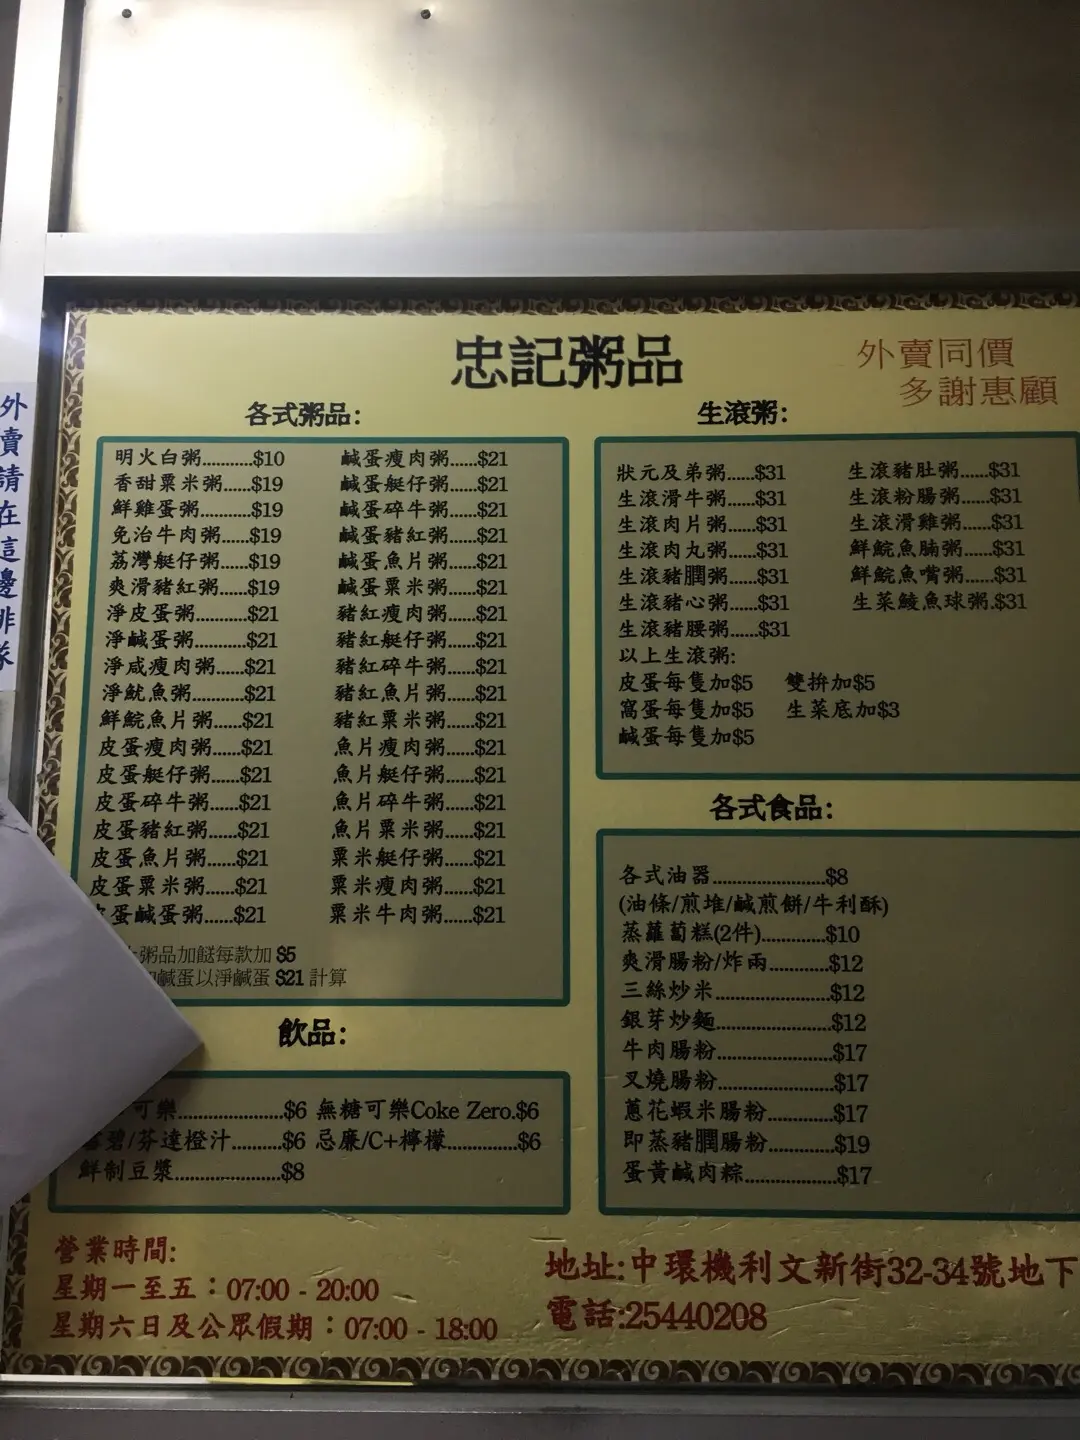 忠記粥品
外賣同價
多謝惠顧
外賣請在這邊排隊
各式粥品:
明火白粥...........$10
香甜粟米粥......$19
鮮雞蛋粥..........$19
免治牛肉粥......$19
荔灣艇仔粥......$19
爽滑豬紅粥......$19
淨皮蛋粥...........$21
淨鹹蛋粥...........$21
淨咸瘦肉粥......$21
淨魷魚粥...........$21
鮮鯇魚片粥......$21
皮蛋瘦肉粥......$21
皮蛋艇仔粥......$21
皮蛋碎牛粥......$21
皮蛋豬紅粥......$21
皮蛋魚片粥......$21
皮蛋粟米粥......$21
皮蛋鹹蛋粥......$21
鹹蛋瘦肉粥......$21
鹹蛋艇仔粥......$21
鹹蛋碎牛粥......$21
鹹蛋豬紅粥......$21
鹹蛋魚片粥......$21
鹹蛋粟米粥......$21
豬紅瘦肉粥......$21
豬紅艇仔粥......$21
豬紅碎牛粥......$21
豬紅魚片粥......$21
豬紅粟米粥......$21
魚片瘦肉粥......$21
魚片艇仔粥......$21
魚片碎牛粥......$21
魚片粟米粥......$21
粟米艇仔粥......$21
粟米瘦肉粥......$21
粟米牛肉粥......$21
粥品加餸每款加 $5
鹹蛋以淨鹹蛋 $21 計算
生滾粥:
狀元及弟粥......$31
生滾滑牛粥......$31
生滾肉片粥......$31
生滾肉丸粥......$31
生滾豬膶粥......$31
生滾豬心粥......$31
生滾豬腰粥......$31
生滾豬肚粥......$31
生滾粉腸粥......$31
生滾滑雞粥......$31
鮮鯇魚腩粥......$31
鮮鯇魚嘴粥......$31
生菜鯪魚球粥.$31
以上生滾粥:
皮蛋每隻加$5 雙拚加$5
窩蛋每隻加$5 生菜底加$3
鹹蛋每隻加$5
各式食品:
各式油器......................$8
(油條/煎堆/鹹煎餅/牛利酥)
蒸蘿蔔糕(2件).............$10
爽滑腸粉/炸兩............$12
三絲炒米.......................$12
銀芽炒麵.......................$12
牛肉腸粉.......................$17
叉燒腸粉.......................$17
蔥花蝦米腸粉.............$17
即蒸豬膶腸粉.............$19
蛋黃鹹肉粽..................$17
飲品:
可樂.......................$6 無糖可樂Coke Zero.$6
碧/芬達橙汁...........$6 忌廉/C+檸檬...............$6
鮮制豆漿.......................$8
營業時間:
星期一至五：07:00 - 20:00
星期六日及公眾假期：07:00 - 18:00
地址:中環機利文新街32-34號地下
電話:25440208